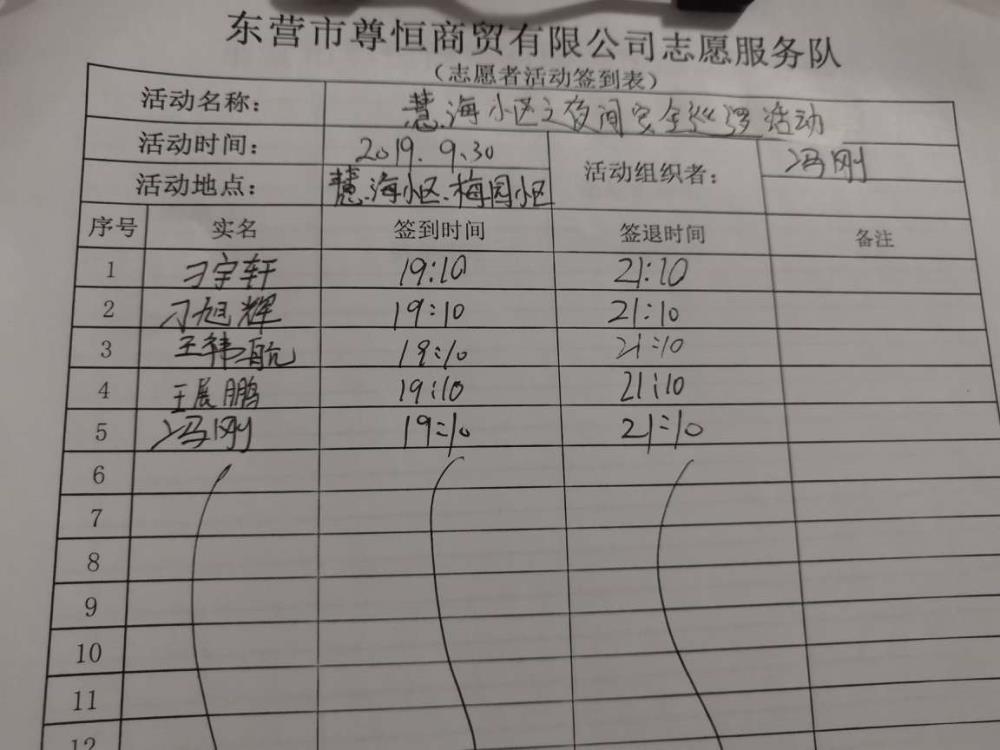 东营市尊恒商贸有限公司志愿服务队
（志愿者活动签到表）
活动名称： 慧海小区之夜间安全巡逻活动
活动时间： 2019.9.30 活动组织者： 冯刚
活动地点： 慧海小区、梅园小区
序号 实名 签到时间 签退时间 备注
1 刁宇轩 19:10 21:10
2 刁旭辉 19:10 21:10
3 王韩航 19:10 21:10
4 王展鹏 19:10 21:10
5 冯刚 19:10 21:10
6
7
8
9
10
11
12